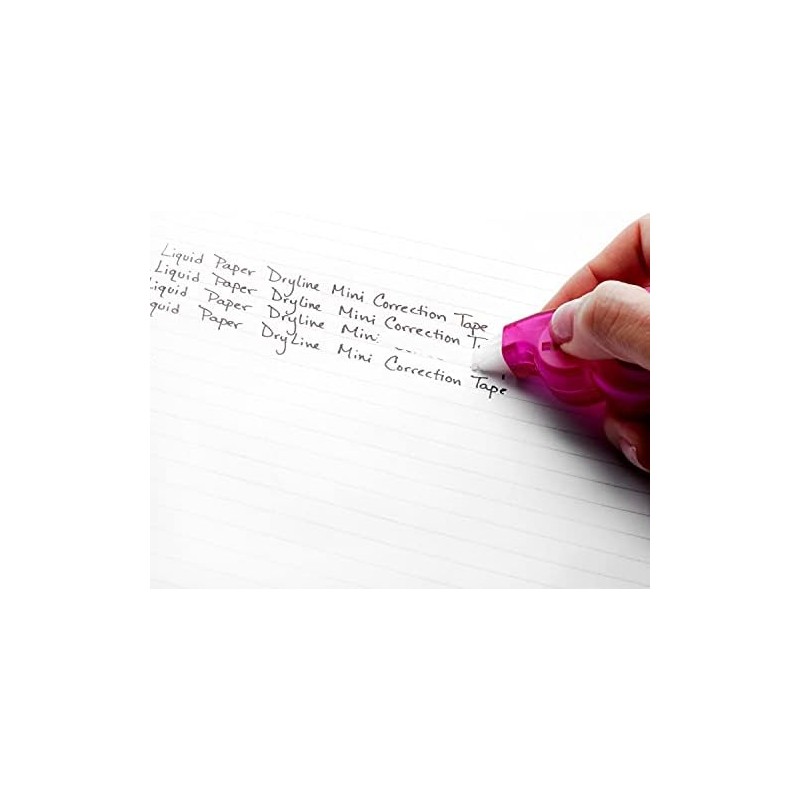 Liquid Paper Dryline Mini Correction Tape
Liquid Paper Dryline Mini Correction T
iquid Paper Dryline Mini
quid Paper DryLine Mini Correction Tape